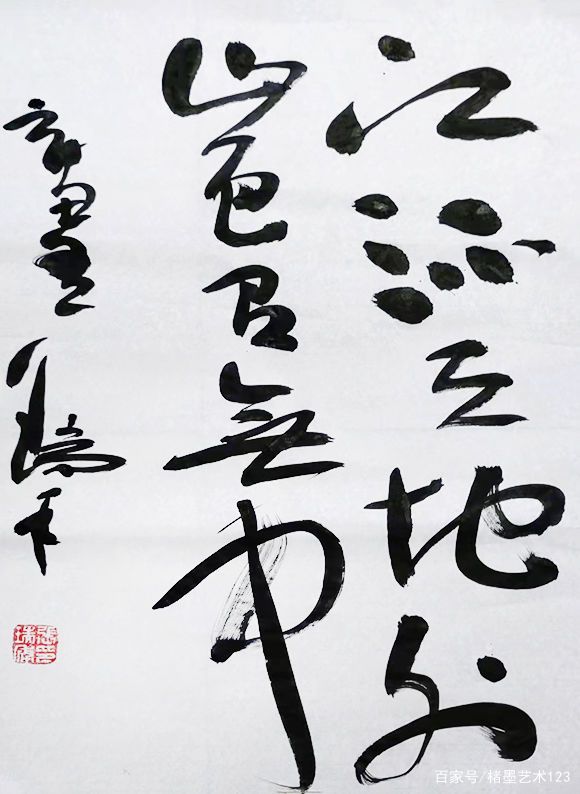 江流天地外
山色有無中
百家号/楮墨艺术123